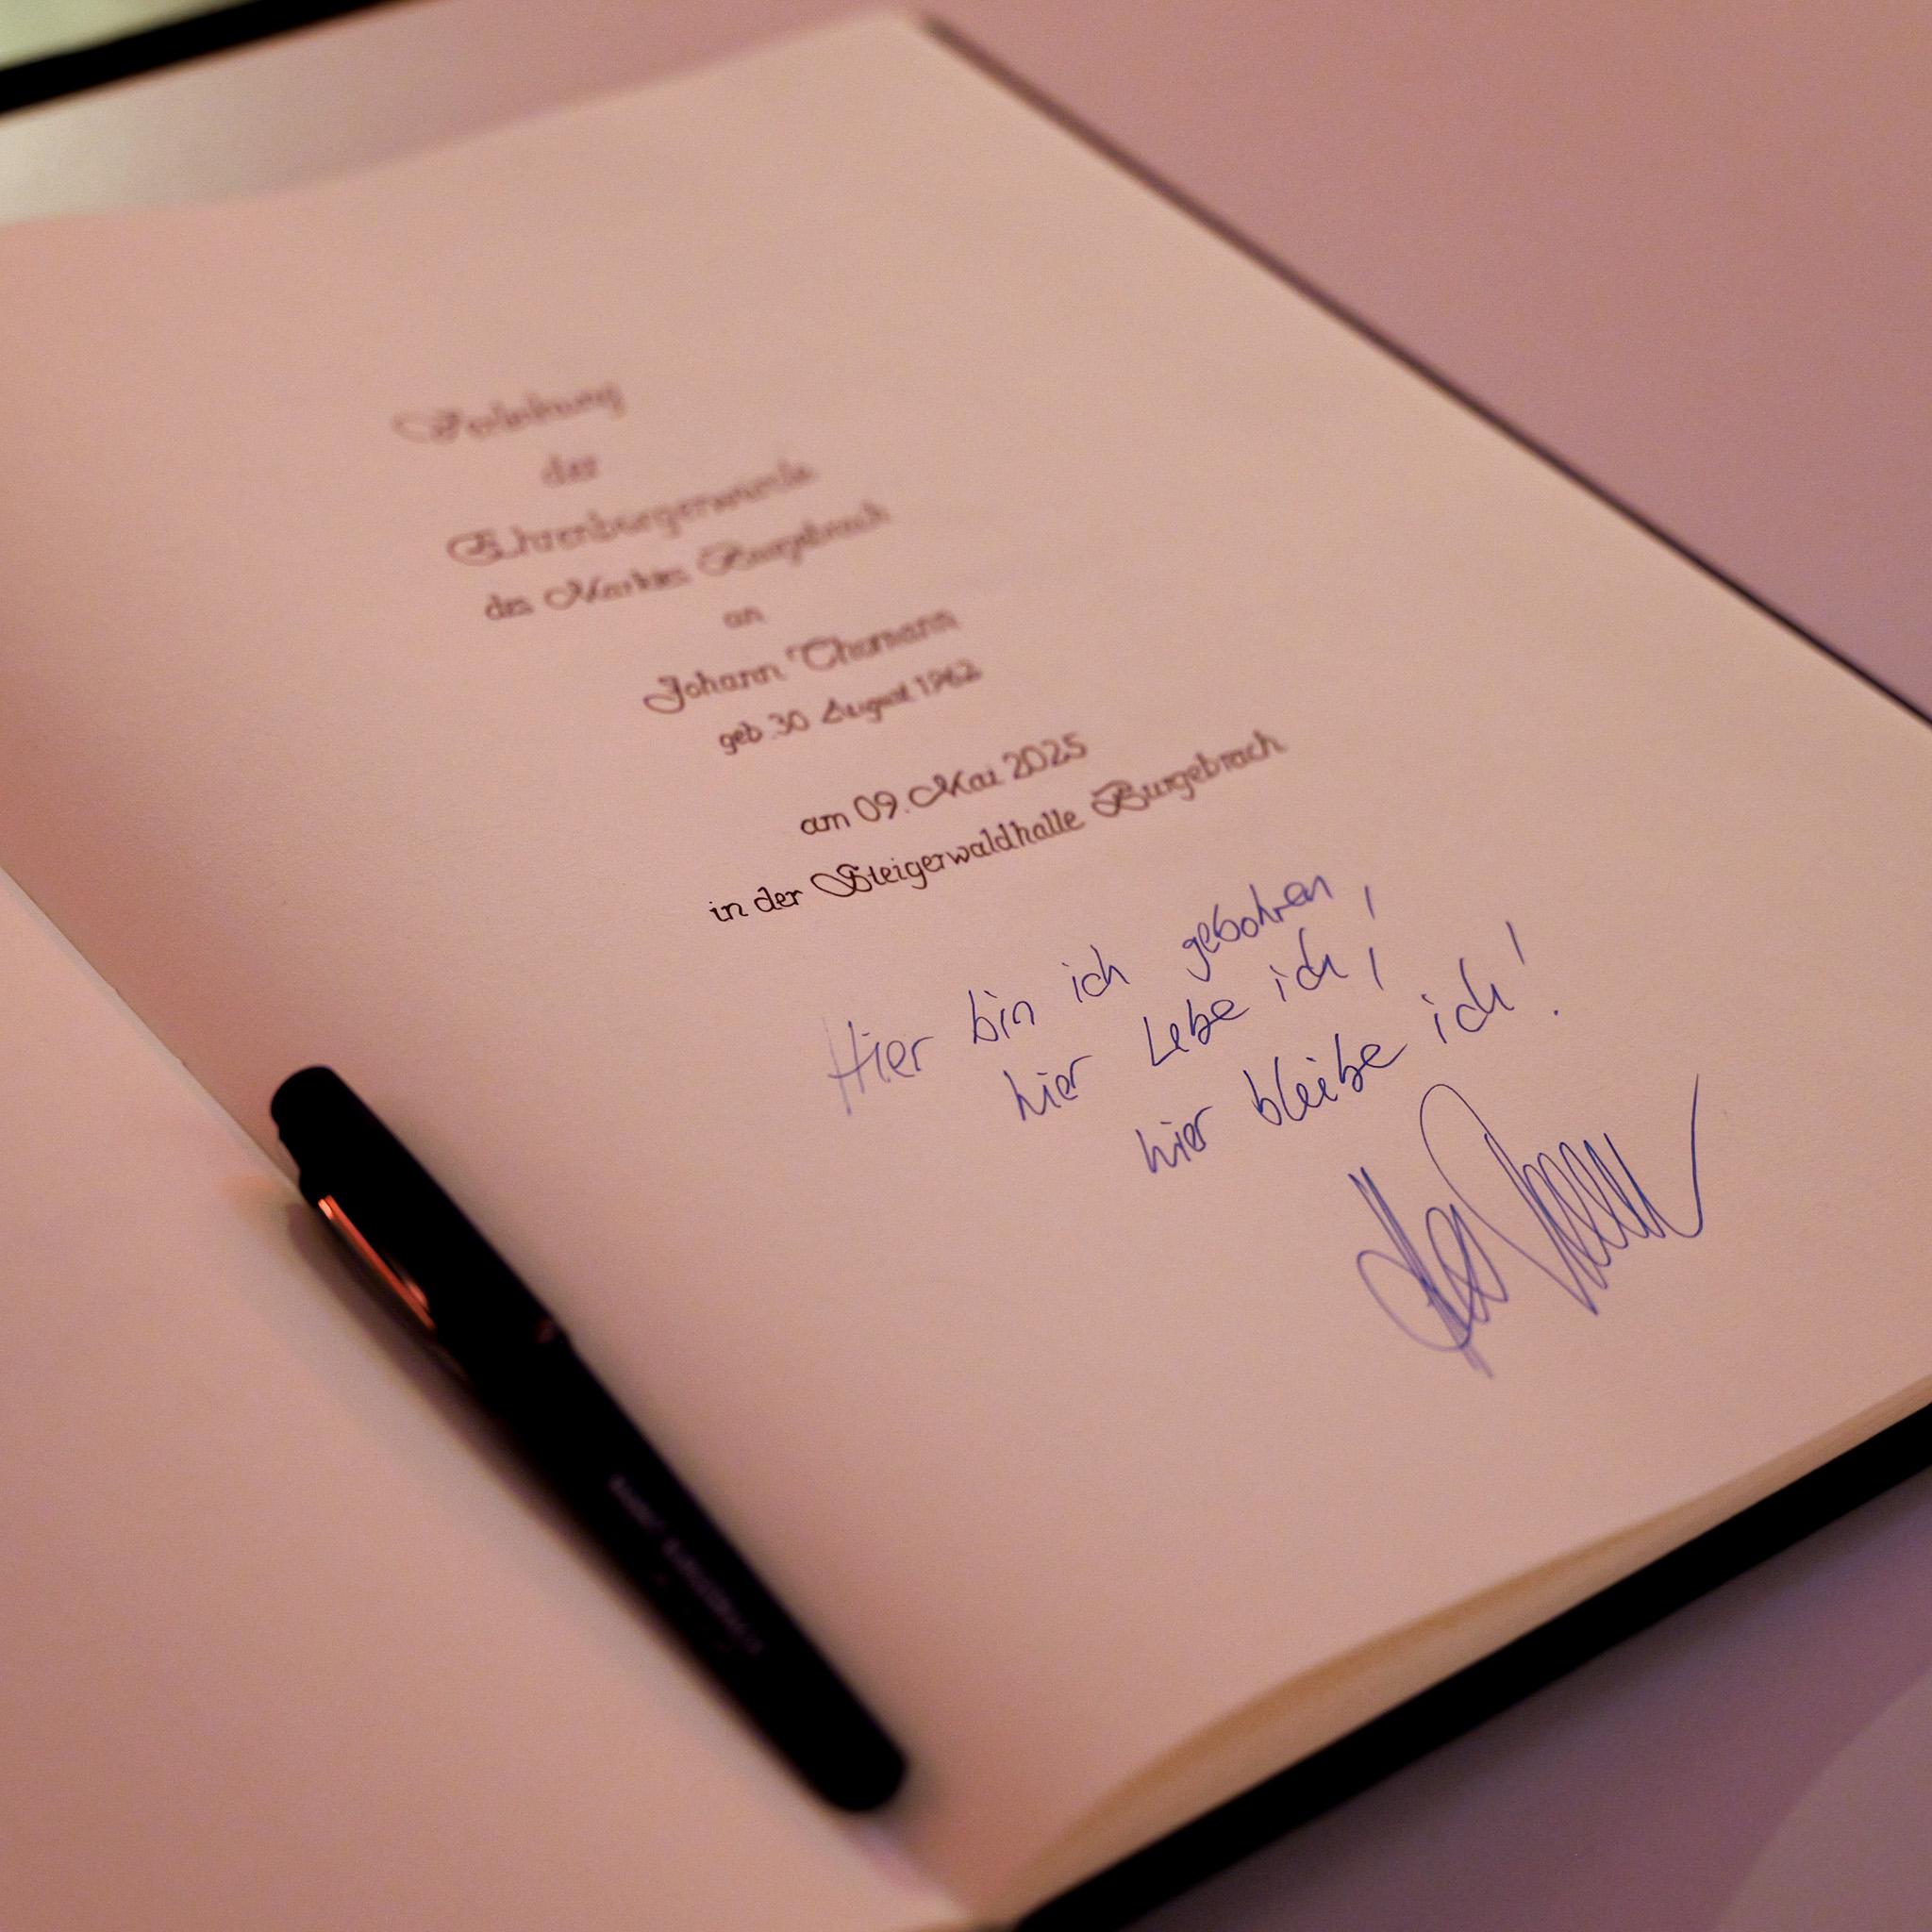 Verleihung
der
Ehrenbürgerwürde
des Marktes Burgebrach
an
Johann Thomann
geb. 30. August 1962
am 09. Mai 2025
in der Steigerwaldhalle Burgebrach
Hier bin ich gebohren,
hier Lebe ich,
hier bleibe ich!